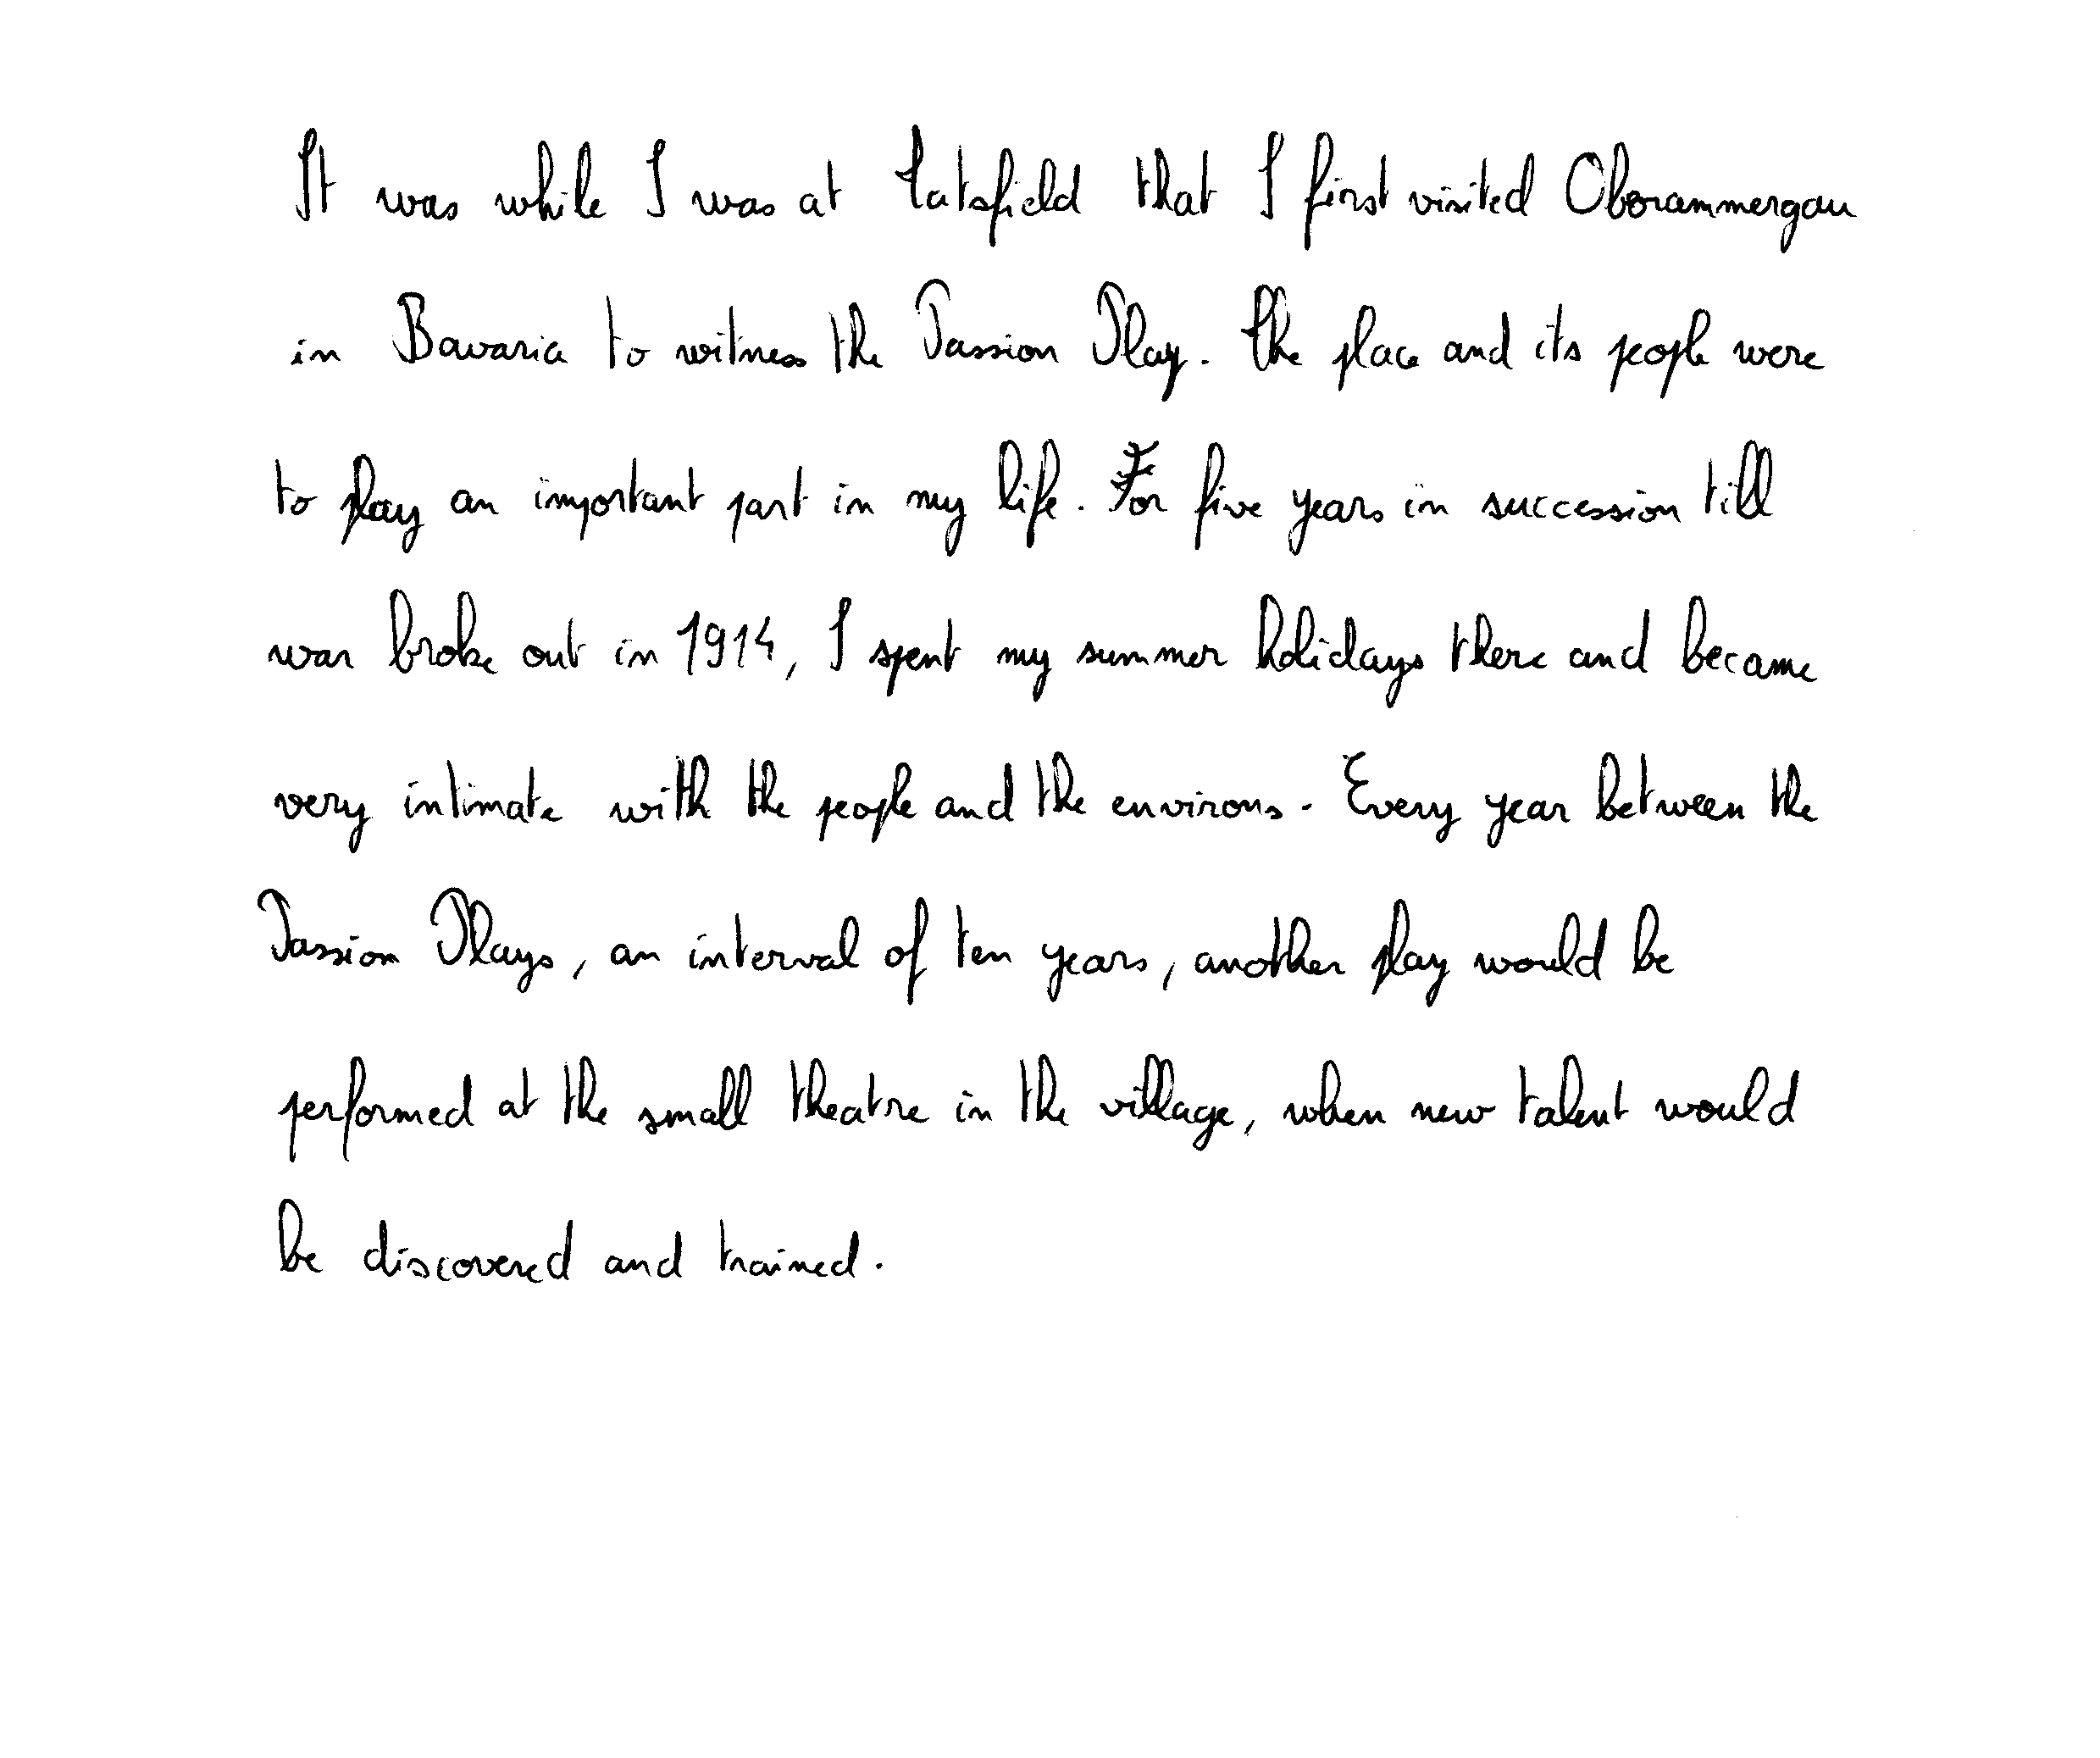 It was while I was at Tatsfield that I first visited Oberammergau
in Bavaria to witness the Passion Play. The place and its people were
to play an important part in my life. For five years in succession till
war broke out in 1914, I spent my summer holidays there and became
very intimate with the people and the environs. Every year between the
Passion Plays, an interval of ten years, another play would be
performed at the small theatre in the village, when new talent would
be discovered and trained.